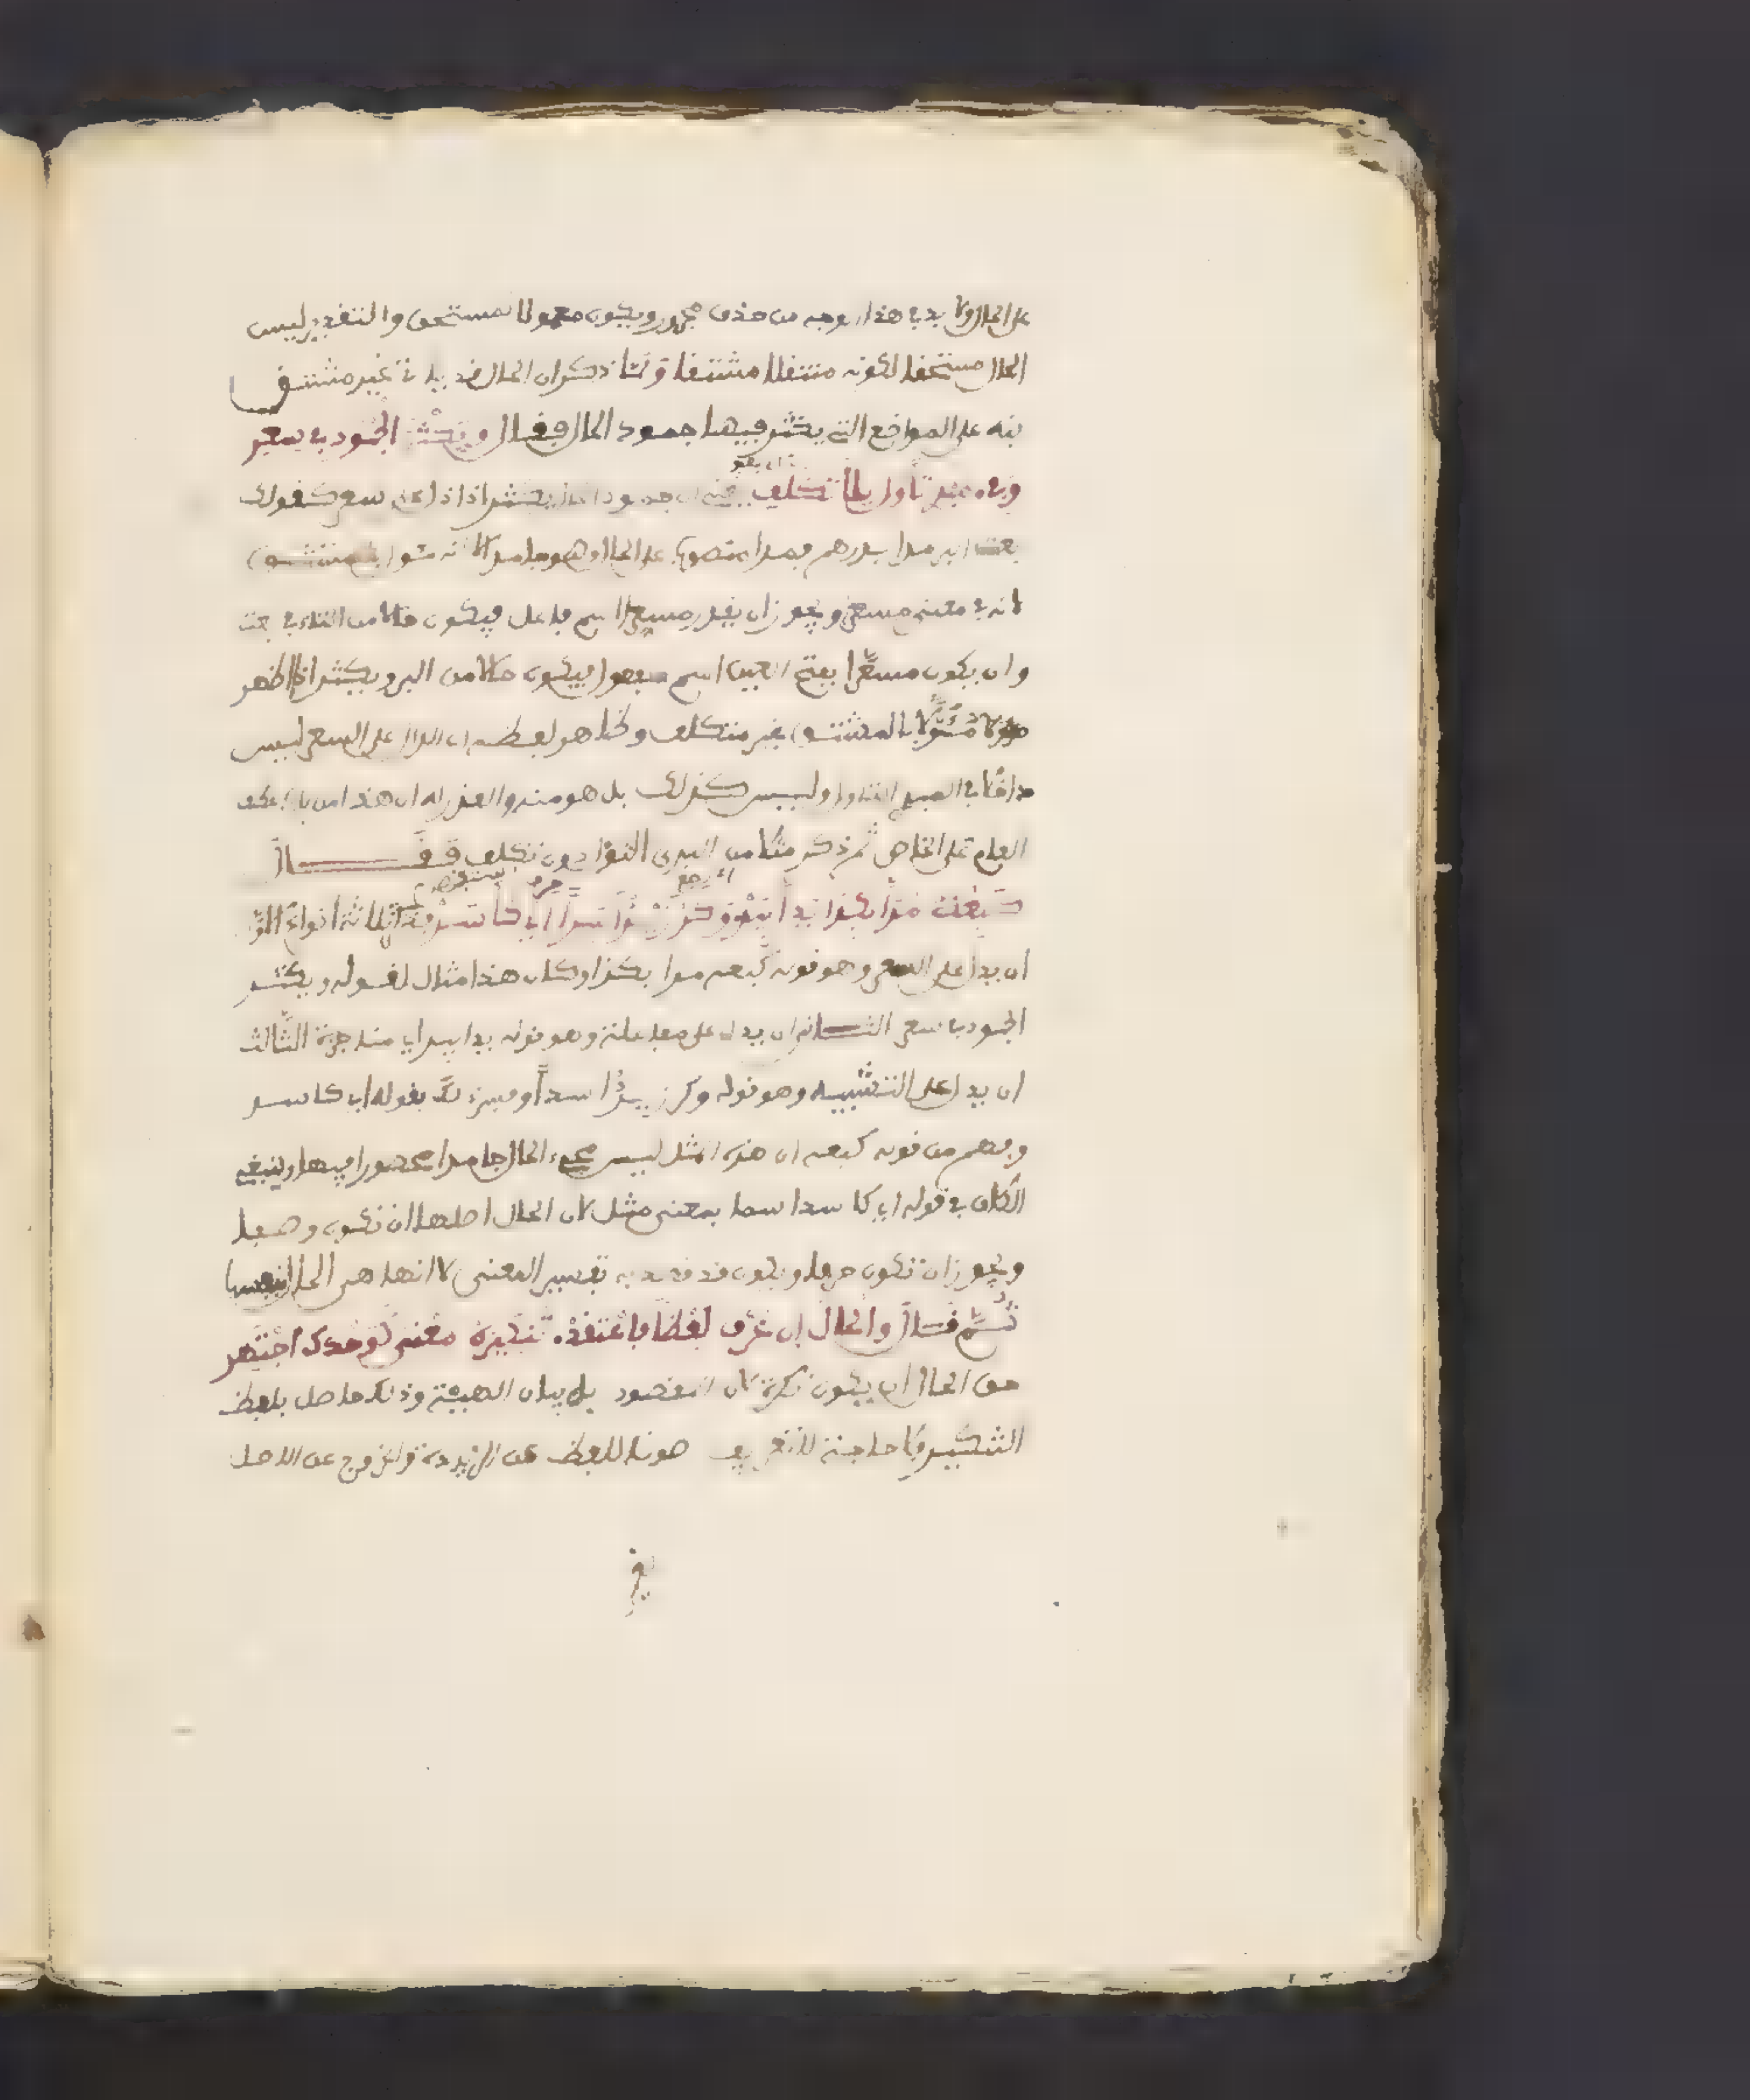 على الحال ولا بد في هذا الوجه من حذف مجرور ويكون معمولا لمستحق والتقدير ليس
الحال مستحقا لكونه منتقلا مشتقا ولما ذكر ان الحال قد ياتي غير مشتق
نبه على المواضع التي يكثر فيها جمود الحال فقال ويكثر الجمود في سعر
وفي مبدي تاول بلا تكلف يعني ان جمود الحال يكثر اذا دل على سعر كقولك
بعت البر مدا بدرهم فمدا منصوب على الحال وهو جامد الا انه مئول بالمشتق
لانه في معنى مسعرا ويجوز ان يقدر مسعرا اسم فاعل فيكون حالا من التاء في بعت
وان يكون مسعرا بفتح العين اسم مفعول فيكون حالا من البر ويكثر اذا ظهر
مئولا بالمشتق غير متكلف وظاهر لفظه ان الدال على السعر ليس
داخلا في المبدي التاول وليس كذلك بل هو منه والعذر له ان هذا من باب عطف
العام على الخاص ثم ذكر مثلا من المبدي التؤل دون تكلف فقال
كبعه مدا بكذا يدا بيد وكر زيد اسدا اي كاسد فذكر ثلاثة انواع الاول
ان يدل على السعر وهو قوله كبعه مدا بكذا وكان هذا مثال لقوله ويكثر
الجمود في سعر الثاني ان يدل على مفاعلة وهو قوله يدا بيد اي مناجزة الثالث
ان يدل على التشبيه وهو قوله وكر زيد اسدا وفسر ذلك بقوله اي كاسد
وفهم من قوله كبعه ان هذه المثل ليس مجيء الحال جامدا محصورا فيها وينبغي
الكاف في قوله اي كاسد اسما بمعنى مثل لان الحال اصلها ان تكون وصفا
ويجوز ان تكون حرفا ويكون قد قصد به تفسير المعنى لا انها هي الحال بنفسها
ثم قال والحال ان عرف لفظا فاعتقد تنكيره معنى كوحدك اجتهد
حق الحال ان يكون نكرة لان المقصود به بيان الهيئة وذلك حاصل بلفظ
التنكير فلا حاجة للتعريف صونا للفظ عن الزيادة والخروج عن الاصل